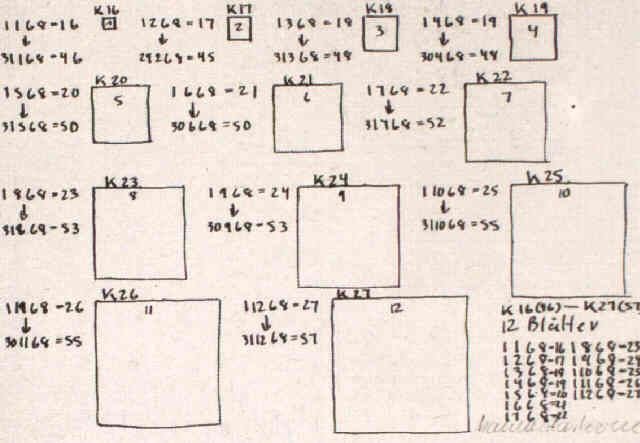 1168-16 K16 1
↓
31168-46
1268-17 K17 2
↓
28268-45
1368-18 K18 3
↓
31368=48
1468-19 K19 4
↓
30468=48
1568=20 K20 5
↓
31568=50
1668-21 K21 6
↓
30668=50
1768=22 K22 7
↓
31768=52
1868-23 K23 8
↓
31868-53
1968=24 K24 9
↓
30968-53
11068-25 K25 10
↓
311068=55
11168-26 K26 11
↓
301168=55
11268-27 K27 12
↓
311268=57
K16(46)—K27(57)
12 Blätter
1168-16 1868-23
1268-17 1968-24
1368-18 11068-25
1468-19 11168-26
1568-20 11268-27
1668-21
1768-22